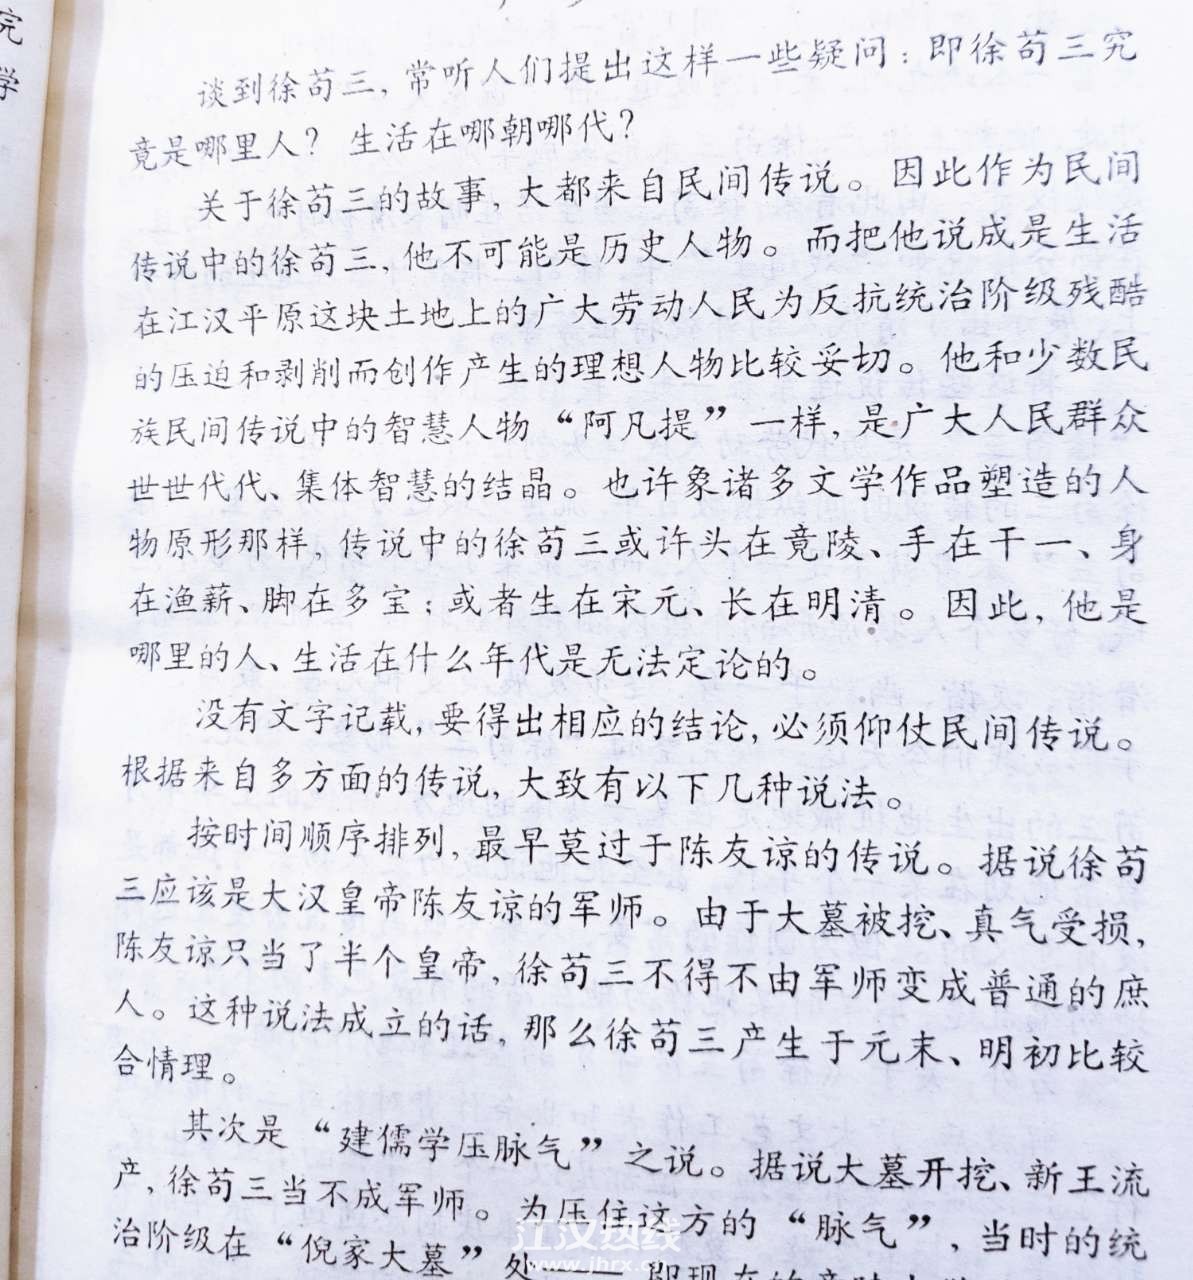 究
学
谈到徐苟三，常听人们提出这样一些疑问：即徐苟三究
竟是哪里人？ 生活在哪朝哪代？
关于徐苟三的故事，大都来自民间传说。因此作为民间
传说中的徐苟三，他不可能是历史人物。而把他说成是生活
在江汉平原这块土地上的广大劳动人民为反抗统治阶级残酷
的压迫和剥削而创作产生的理想人物比较妥切。他和少数民
族民间传说中的智慧人物“阿凡提”一样，是广大人民群众
世世代代、集体智慧的结晶。也许象诸多文学作品塑造的人
物原形那样，传说中的徐苟三或许头在竟陵、手在干一、身
在渔薪、脚在多宝；或者生在宋元、长在明清。因此，他是
哪里的人、生活在什么年代是无法定论的。
没有文字记载，要得出相应的结论，必须仰仗民间传说。
根据来自多方面的传说，大致有以下几种说法。
按时间顺序排列，最早莫过于陈友谅的传说。据说徐苟
三应该是大汉皇帝陈友谅的军师。由于大墓被挖、真气受损，
陈友谅只当了半个皇帝，徐苟三不得不由军师变成普通的庶
人。这种说法成立的话，那么徐苟三产生于元末、明初比较
合情理。
其次是“建儒学压脉气”之说。据说大墓开挖、新王流
产，徐苟三当不成军师。为压住这方的“脉气”，当时的统
治阶级在“倪家大墓”处——即现在的竟陵
江汉热线
www.jhrx.cn